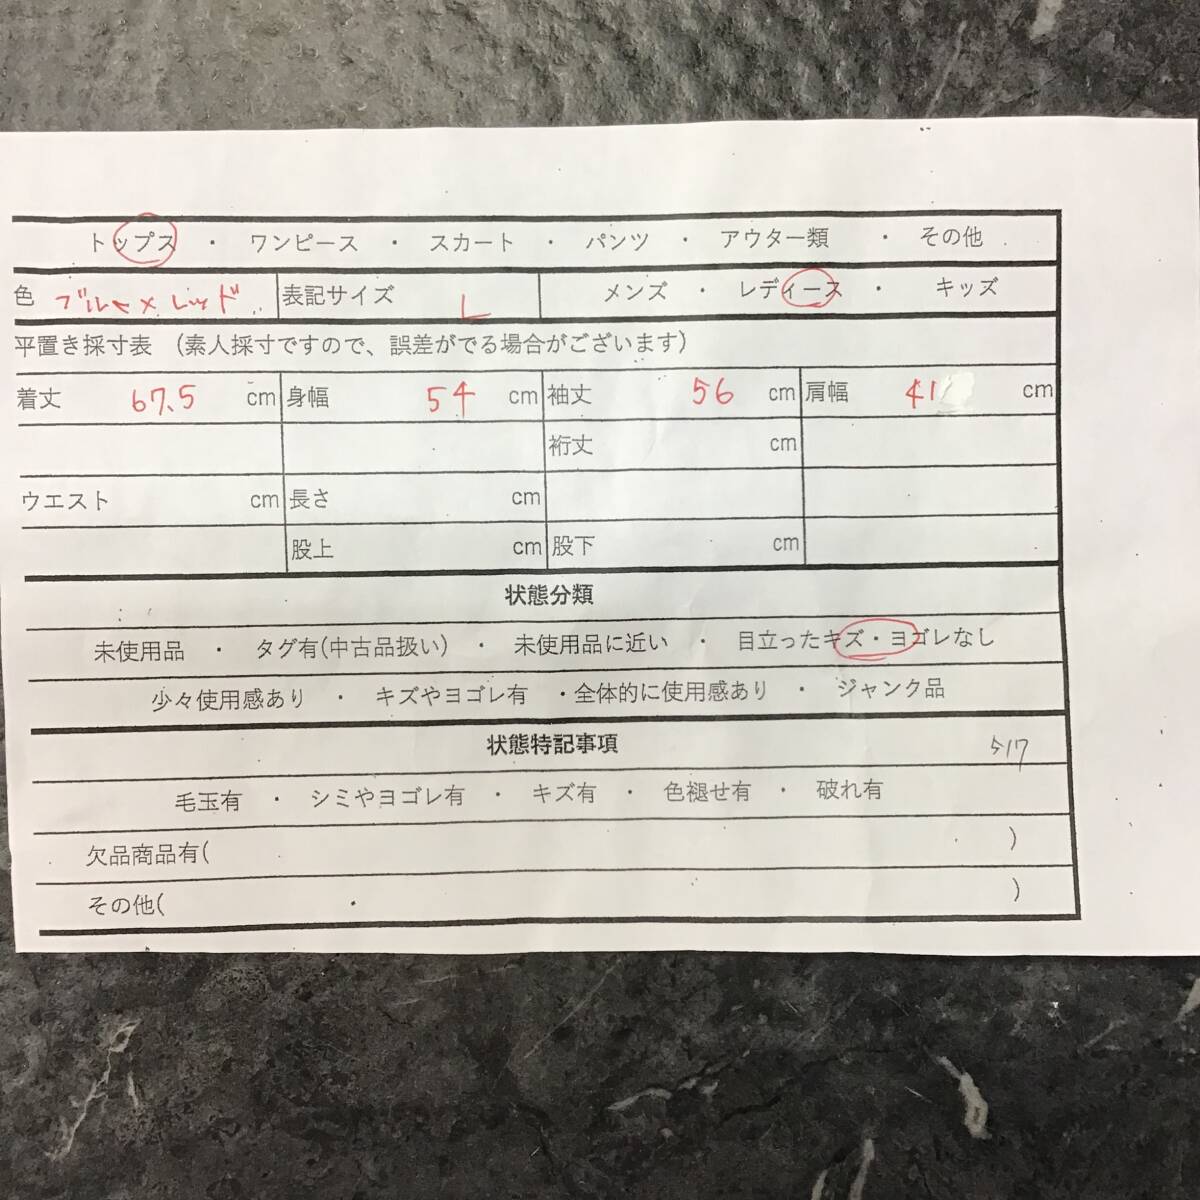 トップス ・ ワンピース ・ スカート ・ パンツ ・ アウター類 ・ その他
色 ブルー×レッド 表記サイズ L メンズ ・ レディース ・ キッズ
平置き採寸表 (素人採寸ですので、誤差がでる場合がございます)
着丈 67.5 cm 身幅 54 cm 袖丈 56 cm 肩幅 41 cm
裄丈 cm
ウエスト cm 長さ cm
股上 cm 股下 cm
状態分類
未使用品 ・ タグ有(中古品扱い) ・ 未使用品に近い ・ 目立ったキズ・ヨゴレなし
少々使用感あり ・ キズやヨゴレ有 ・全体的に使用感あり ・ ジャンク品
状態特記事項
毛玉有 ・ シミやヨゴレ有 ・ キズ有 ・ 色褪せ有 ・ 破れ有
欠品商品有( )
その他( )